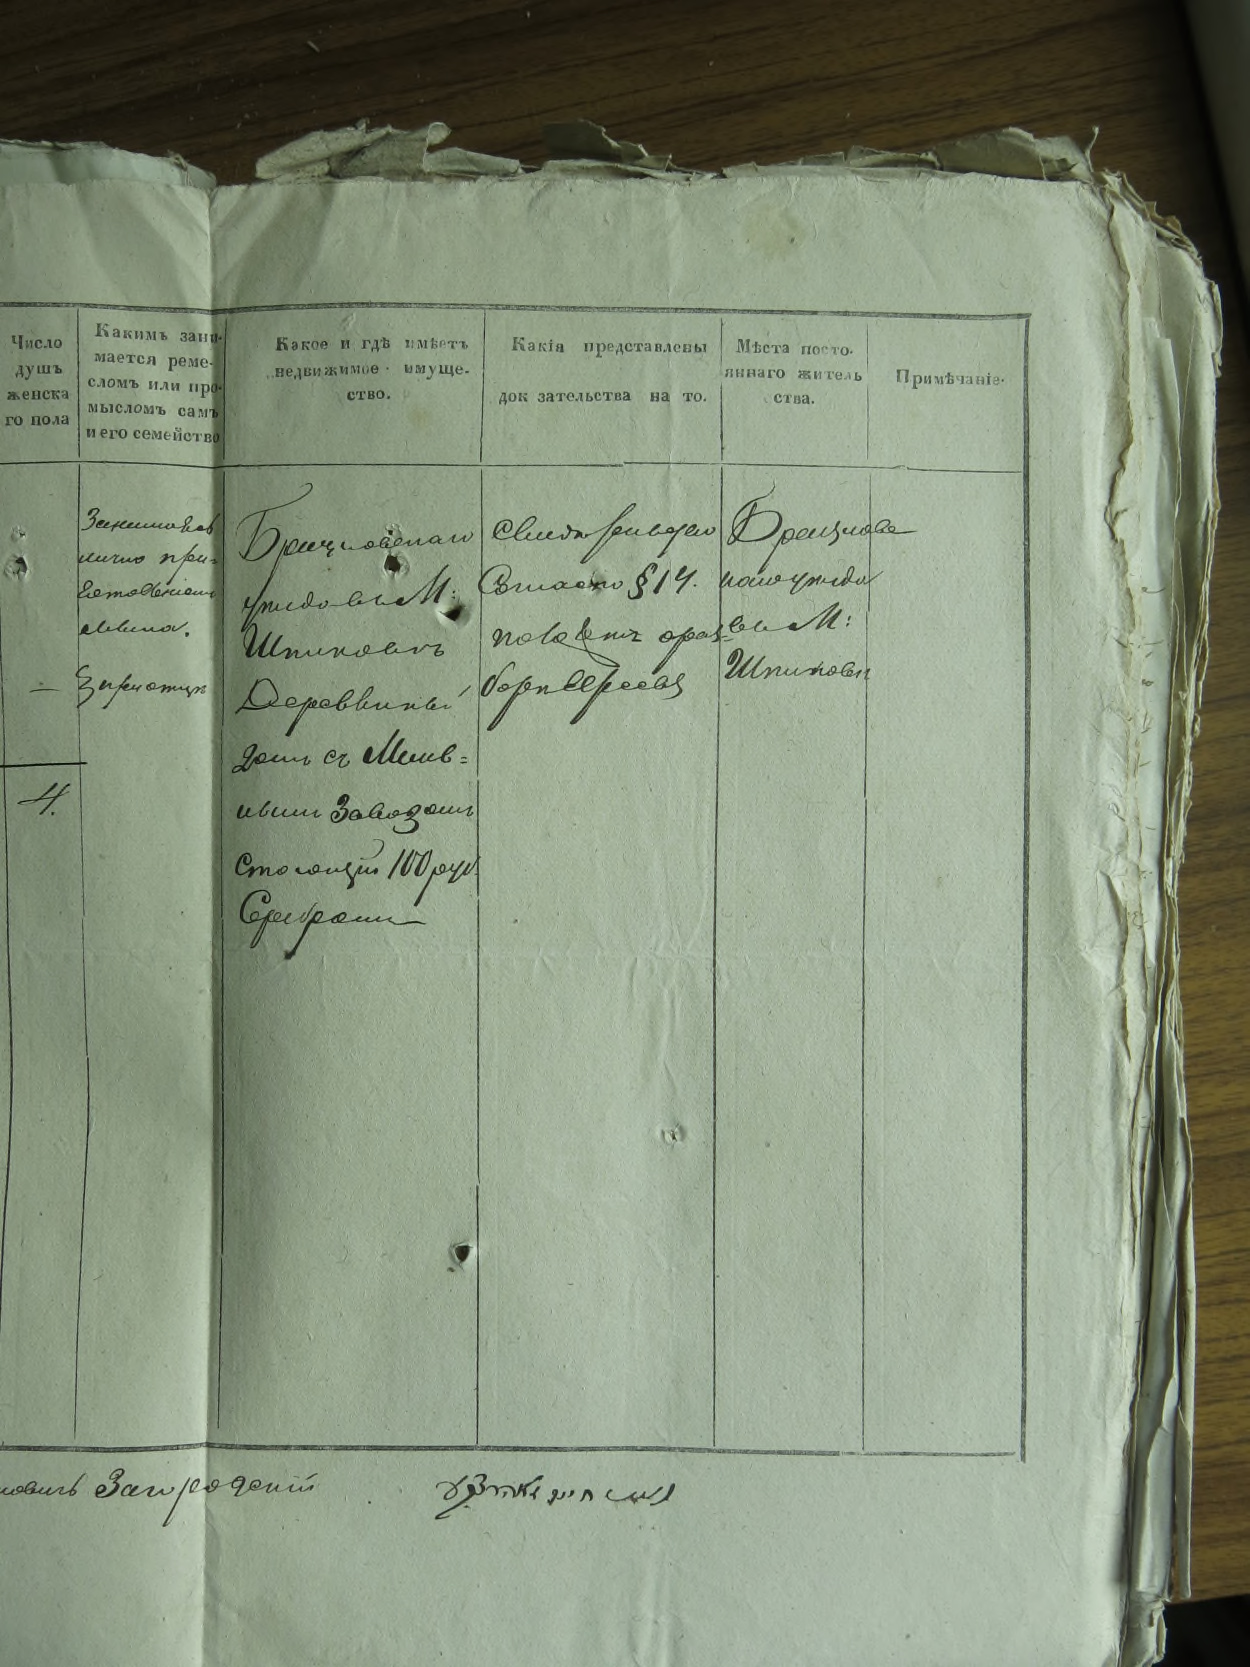 Число
душъ
женска
го пола
Какимъ зани-
мается реме-
сломъ или про-
мысломъ самъ
и его семейство
Какое и гдѣ имѣетъ
недвижимое имуще-
ство.
Какія представлены
док зательства на то.
Мѣста посто-
яннаго житель
ства.
Примѣчаніе.
4.
лично при=
готовленіем
мыла.
Брацлавскаго
уѣзда въ М:
Шпиковѣ
Деревянный
домъ съ Мылв=
нымъ Заводомъ
стоющій 100 руб.
Серебромъ
Согласно § 14.
Брацлавс
каго уѣзда
въ М:
Шпиковѣ
новичъ Загродскій